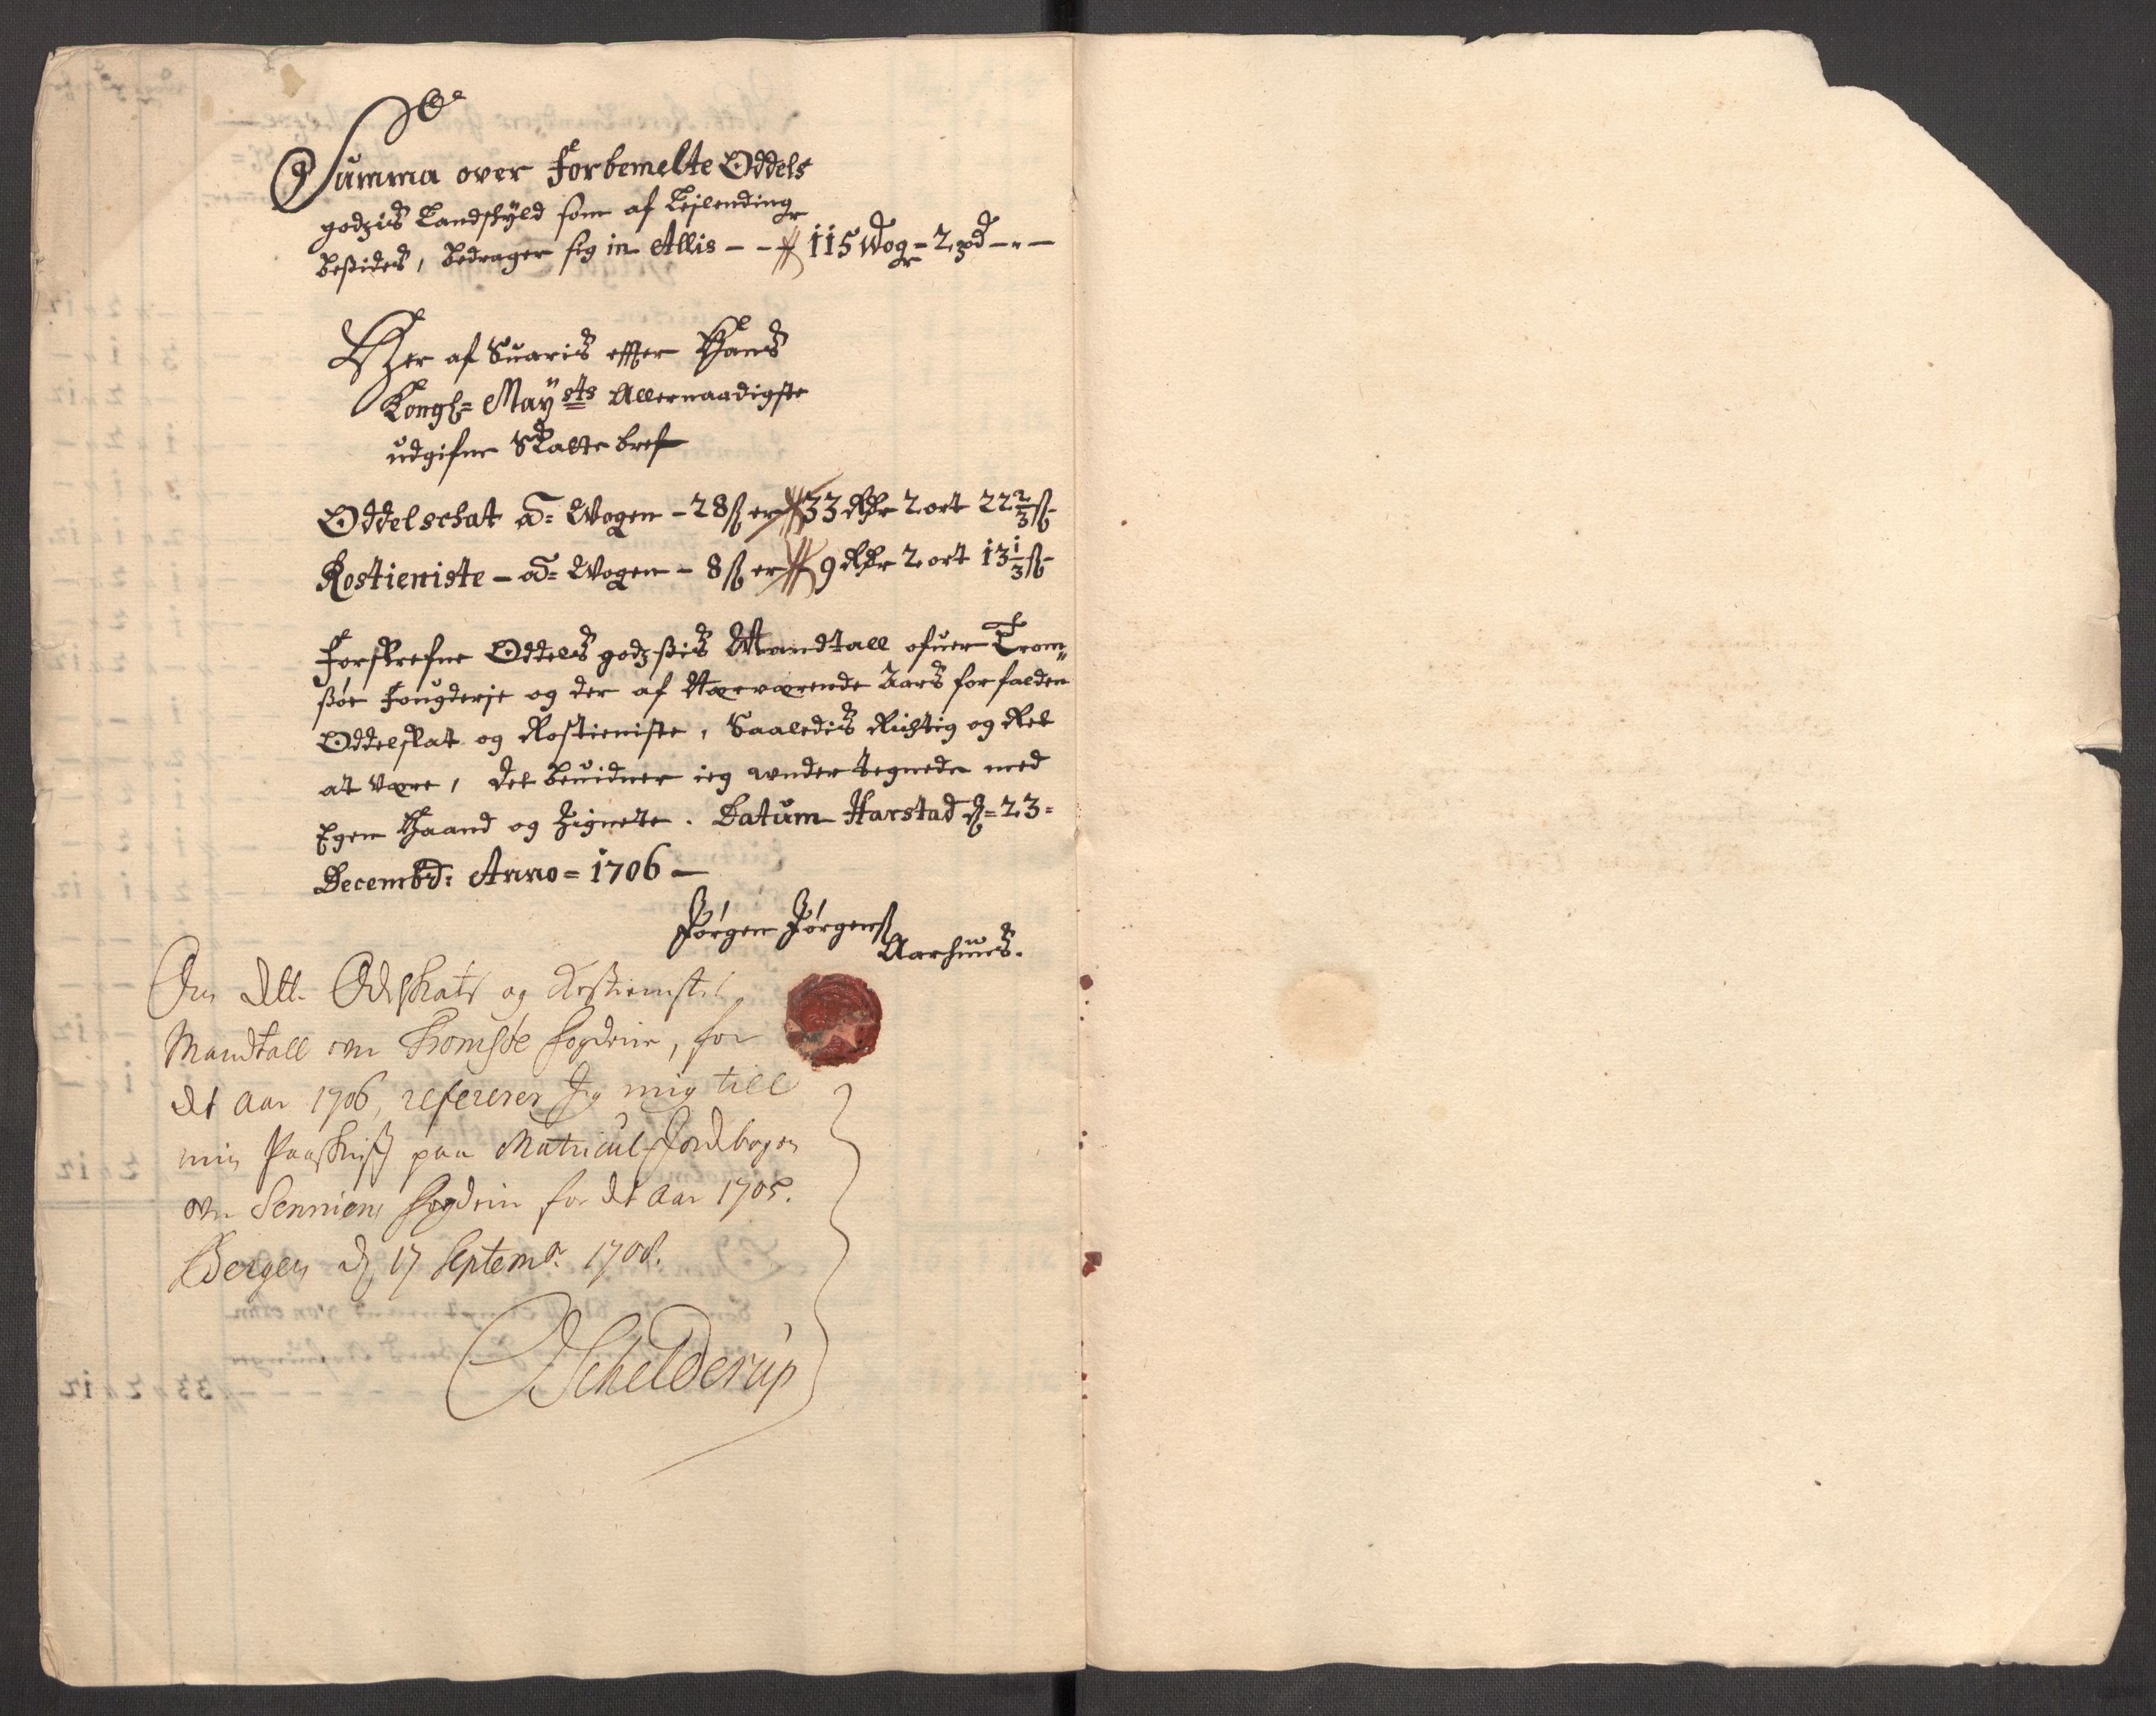 Summa over Forbemelte Oddels
godzis Landskyld som af Leilending
beßides, bedrager sig in Allis - - 115 Wogr = 2 pd - " -
Her af Suaris effter Hans
Kongl= Maysts Allernaadigste
udgifne Skatte bref
Oddelschat a= Wogen - 28 ß er 33 Rdr 2 ort 22 2/3 ß
Rostieniste - a= Wogen - 8 ß er 9 Rdr 2 ort 13 1/3 ß
Forskrefne Oddels godzßis Mandtall ofuer Trom„
ßøe Fougderje og der af Nærværende Aars forfalden
Oddelskat og Rostieniste, Saaledis Richtig og Ret
at være, det beuidner ieg under tegnede med
Egen Haand og Zignete. Datum Harstad d= 23=
Decembr: Anno = 1706 —
Jørgen Jørgenß
Aarhuus.
Om dette Odelskats og Rostienistis
Mandtall over Tromsøe fogderie, for
dt Aar 1706, referrer Jeg mig till
min Paaskrift paa Matricul Jordbogen
over Senniens fogderie for dt Aar 1705.
Bergen d 17 Septembr. 1708.
Schelderup